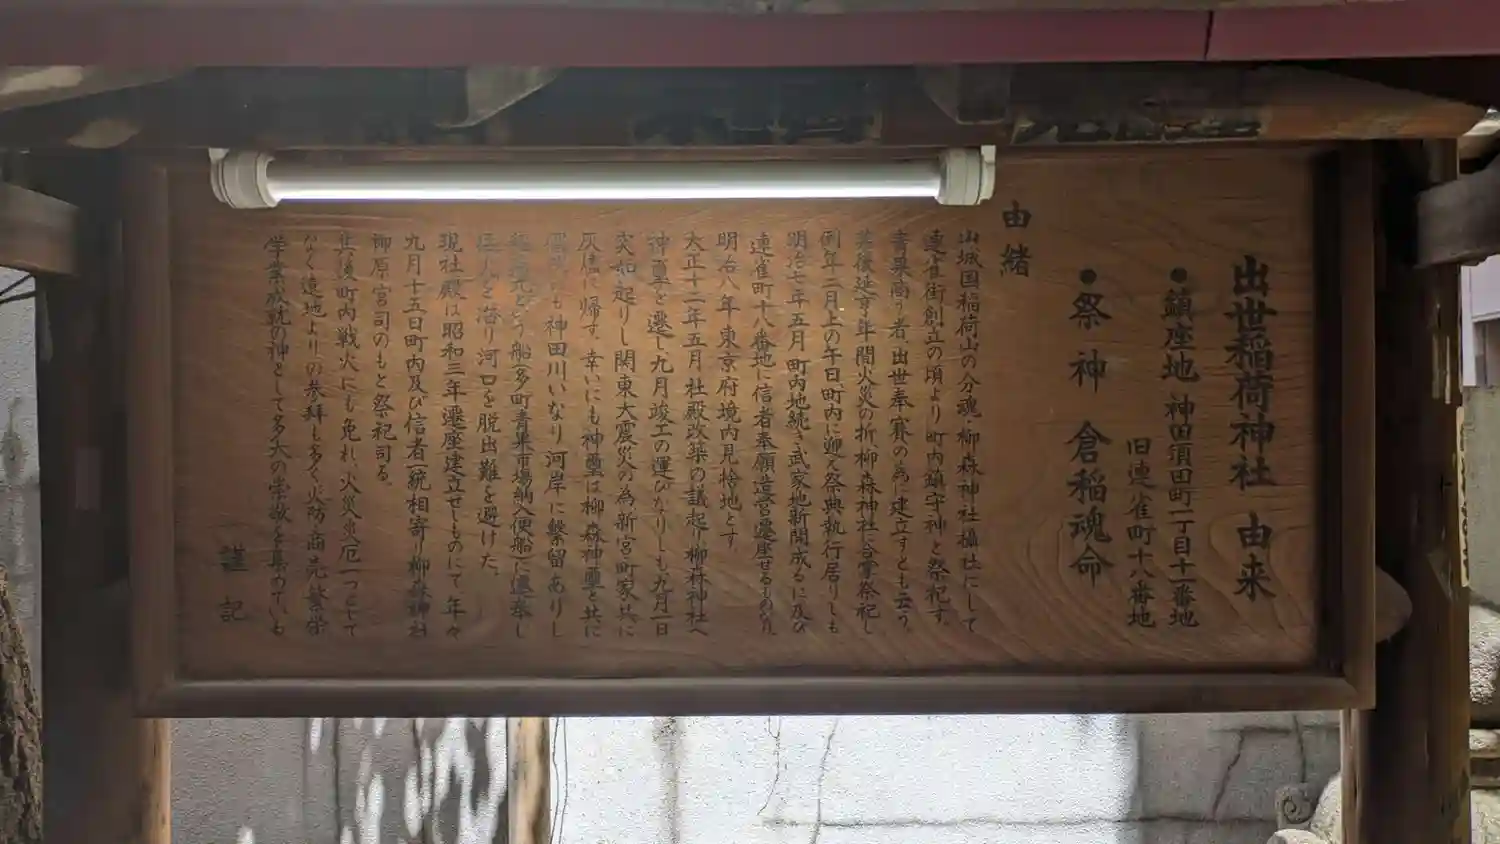 出世稲荷神社 由来
●鎮座地 神田須田町一丁目十一番地
旧連雀町十八番地
●祭神 倉稲魂命
由緒
山城国稲荷山の分魂・柳森神社攝社にして
連雀街創立の頃より町内鎮守神と祭祀す。
青果商う者、出世奉賽の為に建立すとも云う。
其後延享年間火災の折、柳森神社に合霊祭祀し
例年二月上の午日、町内に迎え祭典執行居りしも
明治二年五月町内地続き武家地新開成るに及び
連雀町十八番地に信者奉願造宮遷座せるものなり。
明治八年東京府境内見捨地とす
大正十二年五月社殿改築の議起り柳森神社へ
神霊を遷し、九月竣工の運びなりしも九月一日
突如起りし関東大震災の為新宮・町家共に
灰燼に帰す。幸いにも神霊は柳森神霊と共に
も神田川いなり河岸に繋留ありし
船(多町青果市場納入便船)に遷奉し
を潜り河口を脱出難を避けた。
現社殿は昭和三年遷座建立せしものにて年々
九月十五日町内及び信者一統相寄り柳森神社
柳原宮司のもと祭祀司る。
其後町内戦火にも免れ、火災災厄一つとして
なく遠地よりの参拝も多く火防・商売繁栄
学業成就の神として多大の崇敬を集めている
謹記